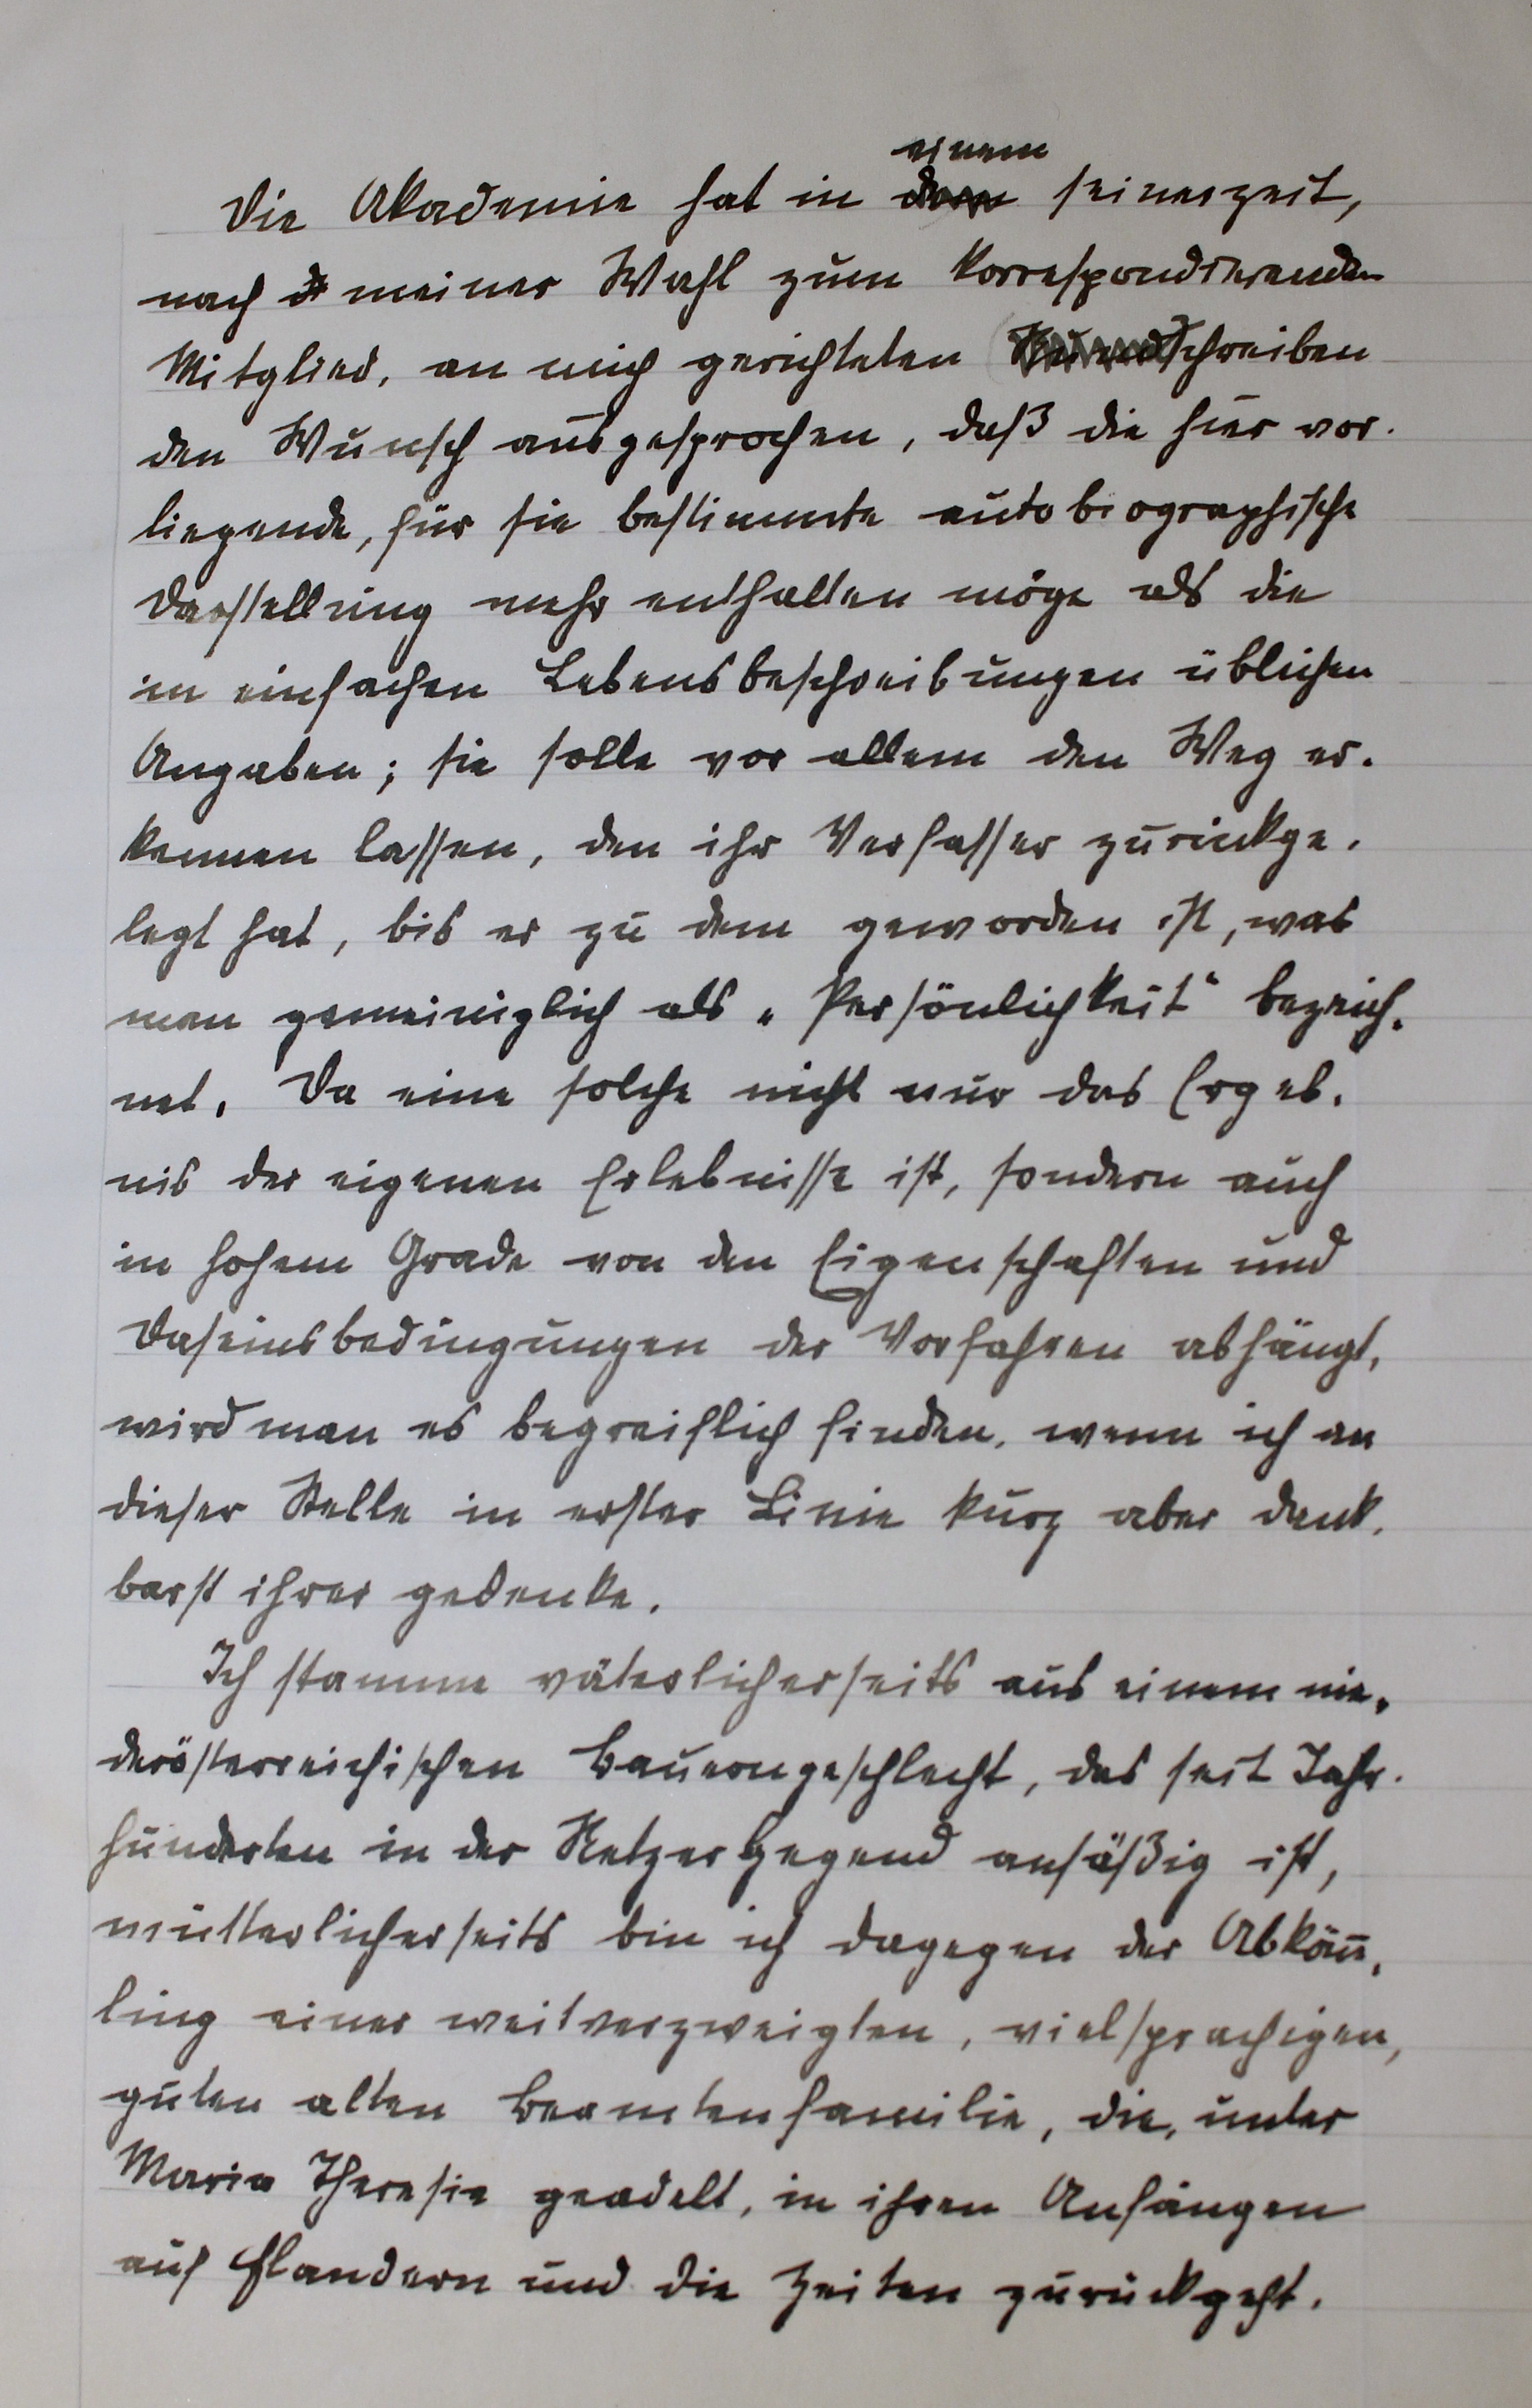 einem
Die Akademie hat in dem seinerzeit,
nach d meiner Wahl zum korrespondierenden
Mitglied, an mich gerichteten Schreiben
den Wunsch ausgesprochen, daß die hier vor-
liegende, für sie bestimmte autobiographische
Darstellung mehr enthalten möge als die
in einfachen Lebensbeschreibungen üblichen
Angaben; sie solle vor allem den Weg er-
kennen lassen, den ihr Verfasser zurückge-
legt hat, bis er zu dem geworden ist, was
man gemeiniglich als „Persönlichkeit“ bezeich-
net. Da eine solche nicht nur das Ergeb-
nis der eigenen Erlebnisse ist, sondern auch
in hohem Grade von den Eigenschaften und
Daseinsbedingungen der Vorfahren abhängt,
wird man es begreiflich finden, wenn ich an
dieser Stelle in erster Linie kurz aber dank-
barst ihrer gedenke.
Ich stamme väterlicherseits aus einem nie-
derösterreichischen Bauerngeschlecht, das seit Jahr-
hunderten in der Retzer Gegend ansäßig ist,
mütterlicherseits bin ich dagegen der Abköm̄-
ling einer weitverzweigten, vielsprachigen,
guten alten Beamtenfamilie, die, unter
Maria Theresie geadelt, in ihren Anfängen
auf Flandern und die Zeiten zurückgeht.